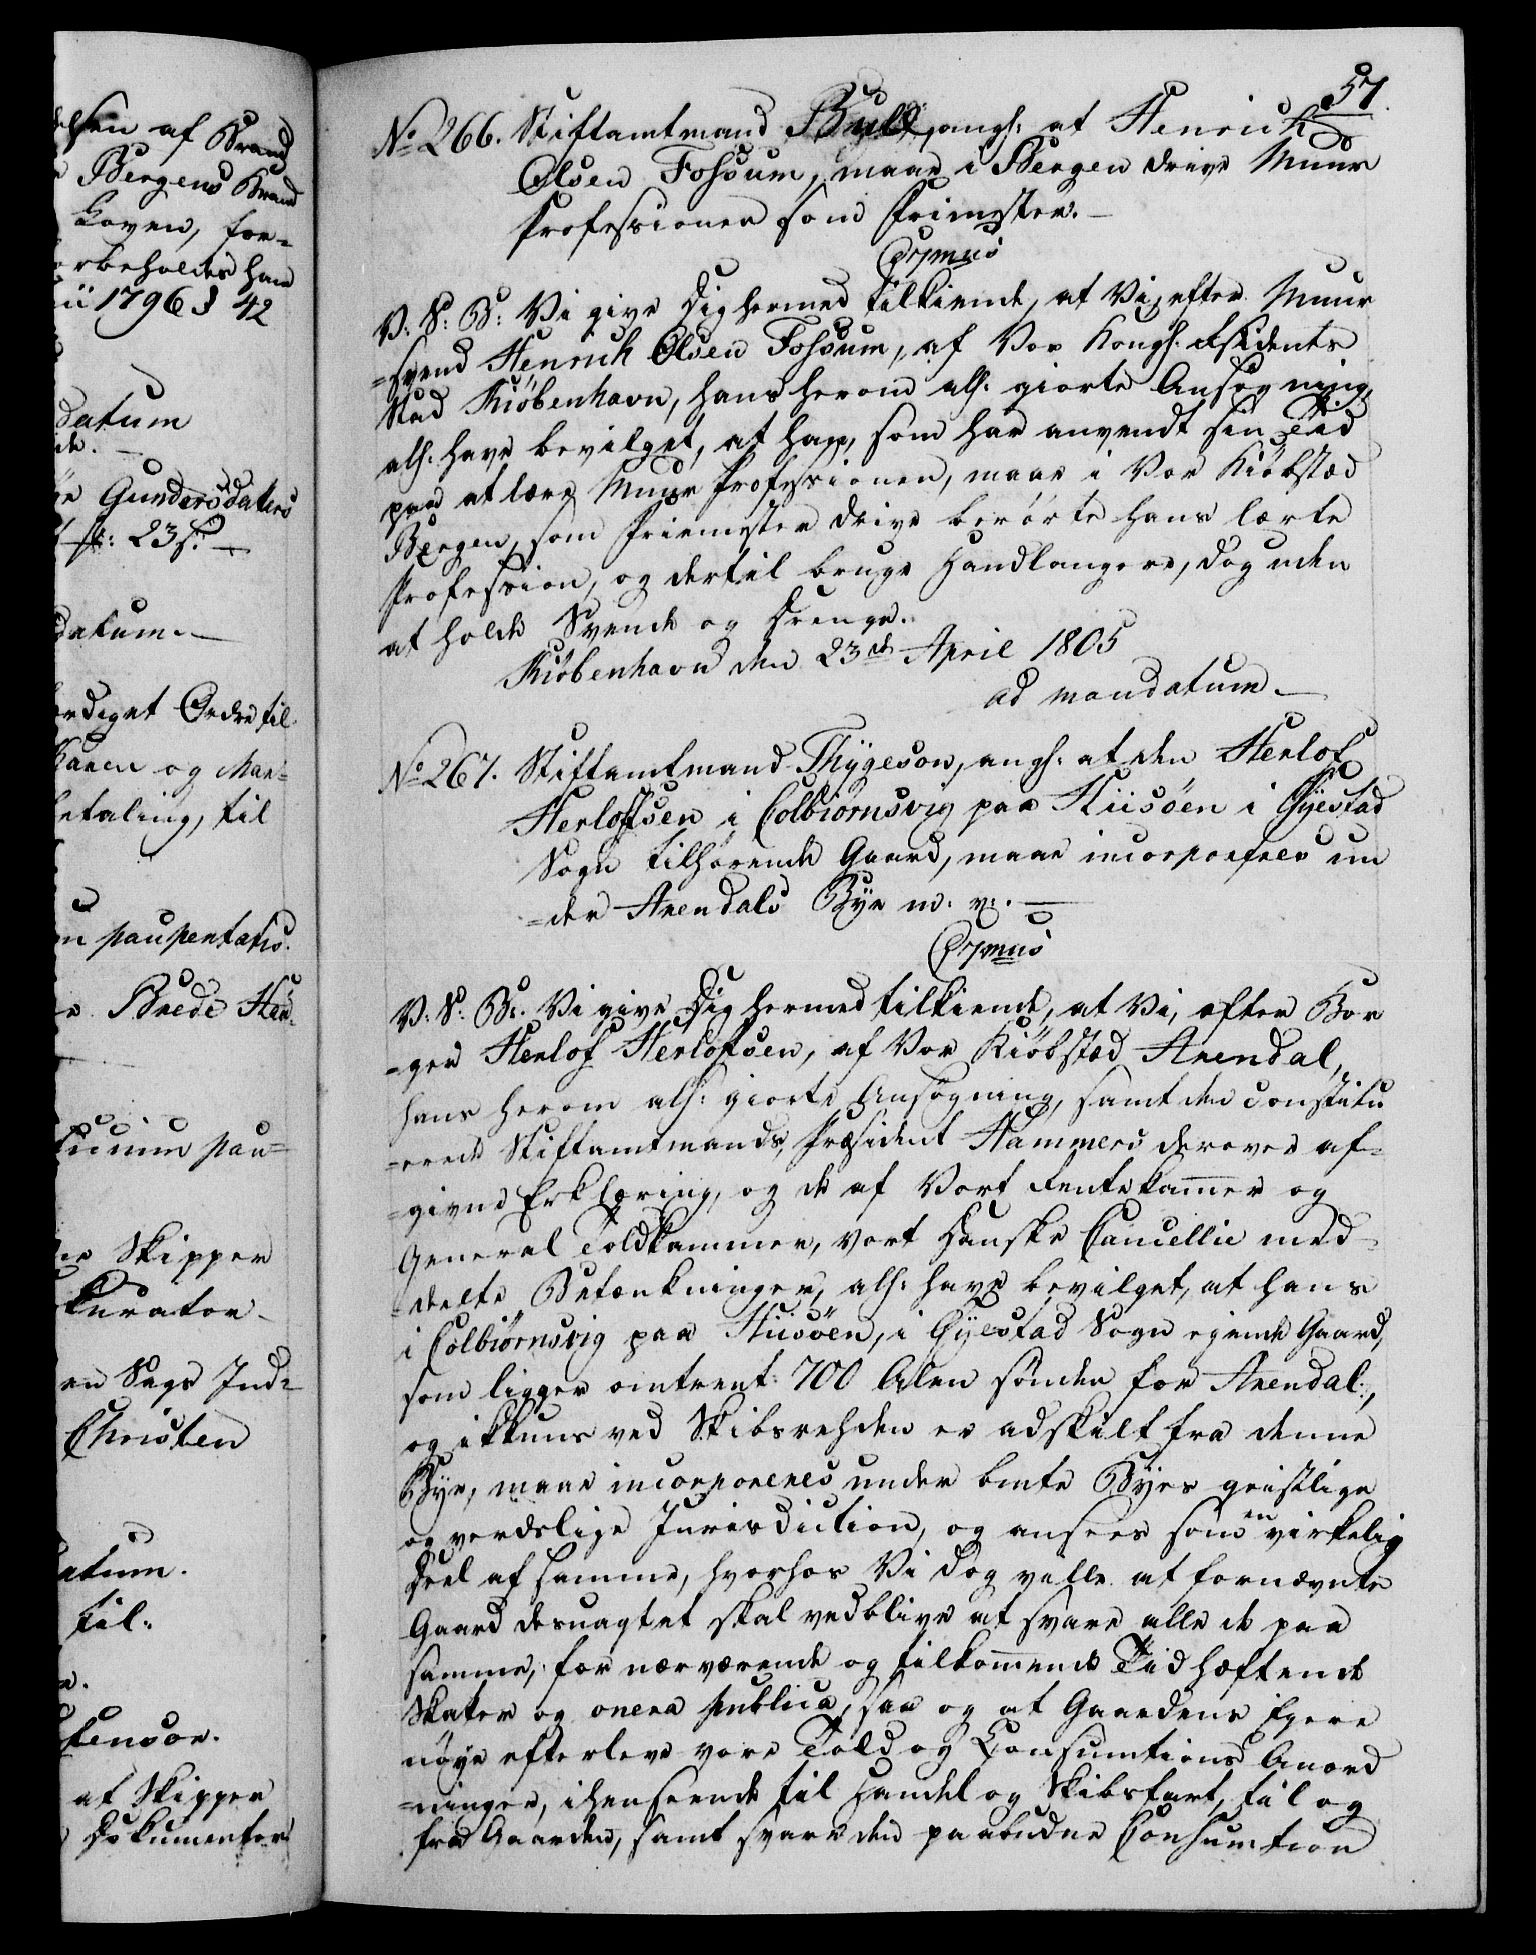 elsen af Brand
Bergens Brand
koven, for=
orbeholdes ham
1796 § 42
datum
de.
Gundersdatters
23 s.
datum.
ærdiget Ordre til
Karen og Mar=
betaling, til
paupertatis.
Brede Han=
ficium pau=
Skipper
kurator
en Sags Ind=
Christen
datum.
til.
fensor.
at Skipper
Dokumenter
57.
No 266. Stiftamtmand Buld, angl: at Henrich
Olsen Fossum, maae i Bergen drive Muur
Professionen som Friemester.
Copmus
V: S: B: Vi give Dig hermed tilkiende, at Vi, efter Muur
=svend Henrich Olsen Fossum, af Vor Kongl. Residents
Stad Kiöbenhavn, hans herom all: giorte Ansögning,
all: have bevilget, at han, som har anvendt sin Tid
paa at lære Muur Professionen, maae i Vor Kiöbstæd
Bergen, som Friemester drive berörte hans lærte
Profession, og dertil bruge Handlangere, dog uden
at holde Svende og Drenge.
Kiöbenhavn den 23de April 1805
ad mandatum.
No 267. Stiftamtmand Thygeson, angl: at den Herlof
Herlofsen i Colbiörnsvig paa Hiisöen i Öyestad
Sogn tilhörende Gaard, maae incorporeres un
=der Arendals Bye m: v:.
Copmus
V: S: B:. Vi give Dig hermed tilkiende, at Vi, efter Bor
=ger Herlof Herlofsen, af Vor Kiöbstæd Arendal,
hans herom all: giorte Ansögning, samt den constitu
=erede Stiftamtmands, Præsident Hammers derover af=
=givne Erklæring, og de af Vort Rentekammer og
General Toldkammer, Vort Danske Cancellie med=
=deelte Betænkninger, all: have bevilget, at hans
i Colbiörnsvig paa Hiisöen, i Öyestad Sogn egende Gaard,
som ligger omtrent 700 Alen sönder for Arendal,
og ikkuns ved Skibsrehden er adskilt fra denne
Bye, maae incorporeres under bmte Byes geistlige
og verdslige Jurisdiction, og ansees som en virkelig
Deel af samme, hvorhos Vi dog ville at fornævnte
Gaard desuagtet skal vedblive at svare alle de paa
samme, for nærværende og tilkommende Tid hæftende
Skatter og onera publica, saa og at Gaardens Eyere
nöye efterleve vore Told og Consumtions Anord
=ninger, i henseende til Handel og Skibsfart, til og
fra Gaarden, samt svare den paabudne Consumtion